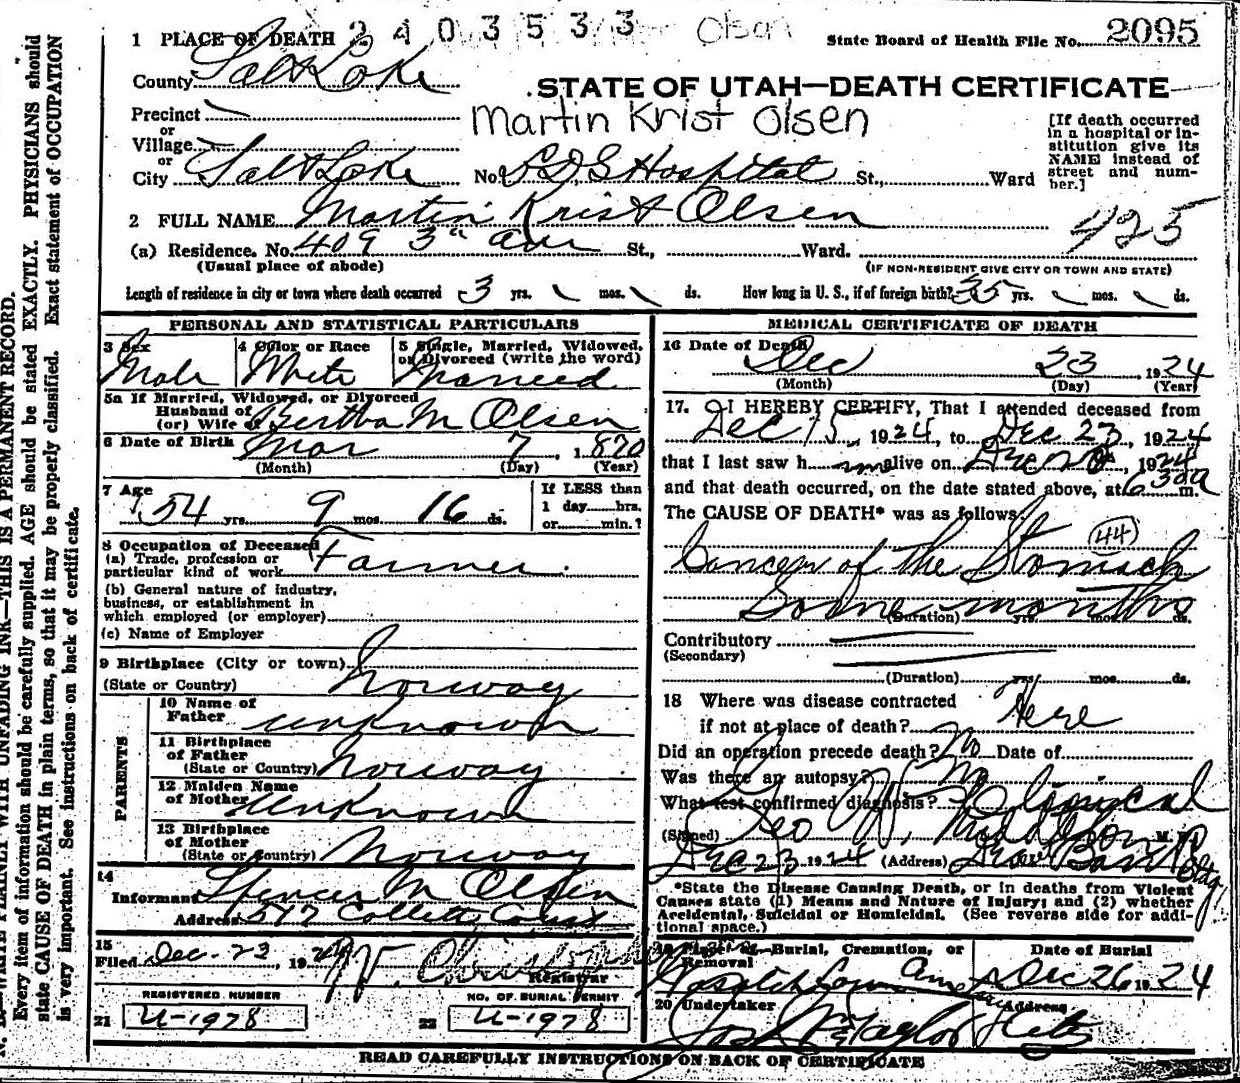 2403533 Olsen
1 PLACE OF DEATH
State Board of Health File No. 2095
County Salt Lake
STATE OF UTAH—DEATH CERTIFICATE
Precinct
or
Martin Krist Olsen
Village
or
City Salt Lake No. L D S Hospital St., Ward
[If death occurred
in a hospital or in-
stitution give its
NAME instead of
street and num-
ber.]
2 FULL NAME Martin Krist Olsen
425
(a) Residence. No. 409 3rd Ave St., Ward.
(Usual place of abode) (IF NON-RESIDENT GIVE CITY OR TOWN AND STATE)
Length of residence in city or town where death occurred 3 yrs. mos. ds. How long in U. S., if of foreign birth? 35 yrs. mos. ds.
PERSONAL AND STATISTICAL PARTICULARS
3 Sex 4 Color or Race 5 Single, Married, Widowed,
or Divorced (write the word)
Male White Married
5a If Married, Widowed, or Divorced
Husband of
(or) Wife of Bertha M Olsen
6 Date of Birth Mar 7, 1870
(Month) (Day) (Year)
7 Age
54 yrs. 9 mos. 16 ds.
If LESS than
1 day hrs.
or min.?
8 Occupation of Deceased
(a) Trade, profession or
particular kind of work Farmer.
(b) General nature of industry,
business, or establishment in
which employed (or employer)
(c) Name of Employer
9 Birthplace (City or town)
(State or Country) Norway
PARENTS
10 Name of
Father unknown
11 Birthplace
of Father
(State or Country) Norway
12 Maiden Name
of Mother unknown
13 Birthplace
of Mother
(State or Country) Norway
14
Informant Spencer M Olsen
Address 517 Collett Court
15
Filed Dec-23, 1924
Registrar
REGISTERED NUMBER NO. OF BURIAL PERMIT
21 U-1978 22 U-1978
MEDICAL CERTIFICATE OF DEATH
16 Date of Death Dec 23 1924
(Month) (Day) (Year)
17. I HEREBY CERTIFY, That I attended deceased from
Dec 15, 1924, to Dec 23, 1924
that I last saw h im alive on Dec, 1924
and that death occurred, on the date stated above, at 6 30a m.
The CAUSE OF DEATH* was as follows:
(44)
Cancer of the Stomach
Some months
(Duration) yrs. mos. ds.
Contributory
(Secondary)
(Duration) yrs. mos. ds.
18 Where was disease contracted
if not at place of death? Here
Did an operation precede death? No Date of
Was there an autopsy? No
What test confirmed diagnosis? Clinical
(Signed) Geo W. Middleton M. D.
Dec 23 1924 (Address) Bldg
*State the Disease Causing Death, or in deaths from Violent
Causes state (1) Means and Nature of Injury; and (2) whether
Accidental, Suicidal or Homicidal. (See reverse side for addi-
tional space.)
19 Place of Burial, Cremation, or
Removal
Date of Burial
Wasatch Lawn Dec 26 1924
20 Undertaker Address
Jos Wm Taylor
READ CAREFULLY INSTRUCTIONS ON BACK OF CERTIFICATE
WRITE PLAINLY WITH UNFADING INK—THIS IS A PERMANENT RECORD.
Every item of information should be carefully supplied. AGE should be stated EXACTLY. PHYSICIANS should
state CAUSE OF DEATH in plain terms, so that it may be properly classified. Exact statement of OCCUPATION
is very important. See instructions on back of certificate.